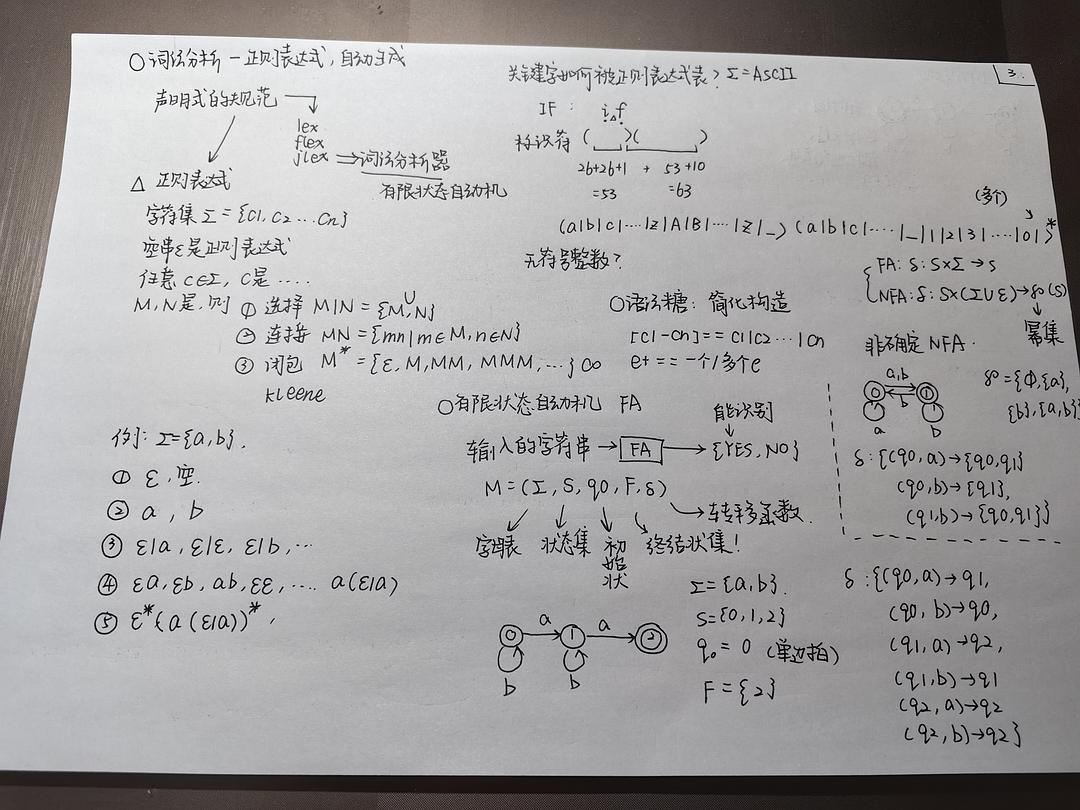 ○词法分析 — 正则表达式，自动生成
声明式的规范
lex
flex
jlex ⇒ 词法分析器
有限状态自动机
△ 正则表达式
字符集 Σ = {c1, c2 … cn}
空串ε是正则表达式
任意 c∈Σ, c是 ….
M,N是,则 ① 选择 M|N = {M,N}
∪
② 连接 MN = {mn|m∈M,n∈N}
③ 闭包 M* = {ε, M, MM, MMM, …} ∞
kleene
例: Σ={a,b}.
① ε,空.
② a , b
③ ε|a , ε|ε, ε|b, …
④ εa, εb, ab, εε, …. a(ε|a)
⑤ ε*(a(ε|a))* ,
3.
关键字如何被正则表达式表? Σ=ASCII
IF : if
标识符 ( )( )
26+26+1 + 53+10
=53 =63
(多个)
(a|b|c|…|z|A|B|…|Z|_) (a|b|c|…|_|1|2|3|…|0|)*
无符号整数?
○语法糖: 简化构造
[c1-cn] == c1|c2…|cn
e+ == 一个/多个e
○有限状态自动机 FA
能识别
输入的字符串 → FA → {YES, NO}
M = (Σ, S, q0, F, δ)
转移函数.
字母表 状态集 初始状 终结状集!
Σ={a,b}.
S={0,1,2}
q0 = 0
F = {2}
0 a 1 a 2
b b
FA: δ: S×Σ→s
NFA: δ: S×(Σ∪ε)→℘(S)
幂集
非确定 NFA.
a,b
0 1
b
a b
℘={Φ,{a},
{b},{a,b}
δ:{(q0,a)→{q0,q1}
(q0,b)→{q1},
(q1,b)→{q0,q1}}
δ:{(q0,a)→q1,
(q0,b)→q0,
(q1,a)→q2,
(q1,b)→q1
(q2,a)→q2
(q2,b)→q2}